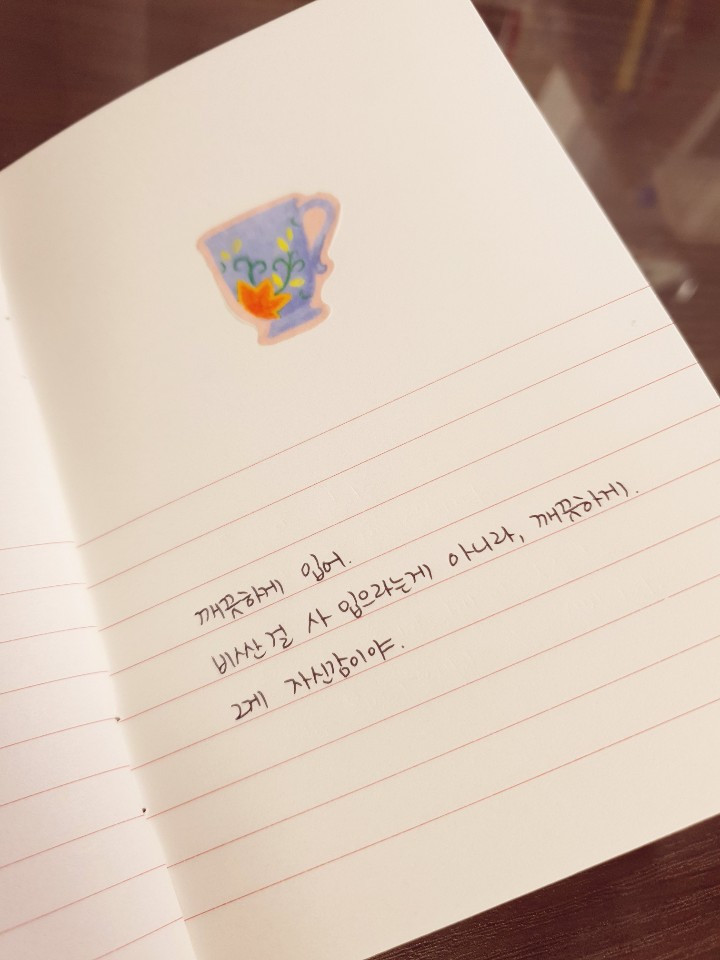 깨끗하게 입어.
비싼걸 사 입으라는게 아니라, 깨끗하게.
그게 자신감이야.